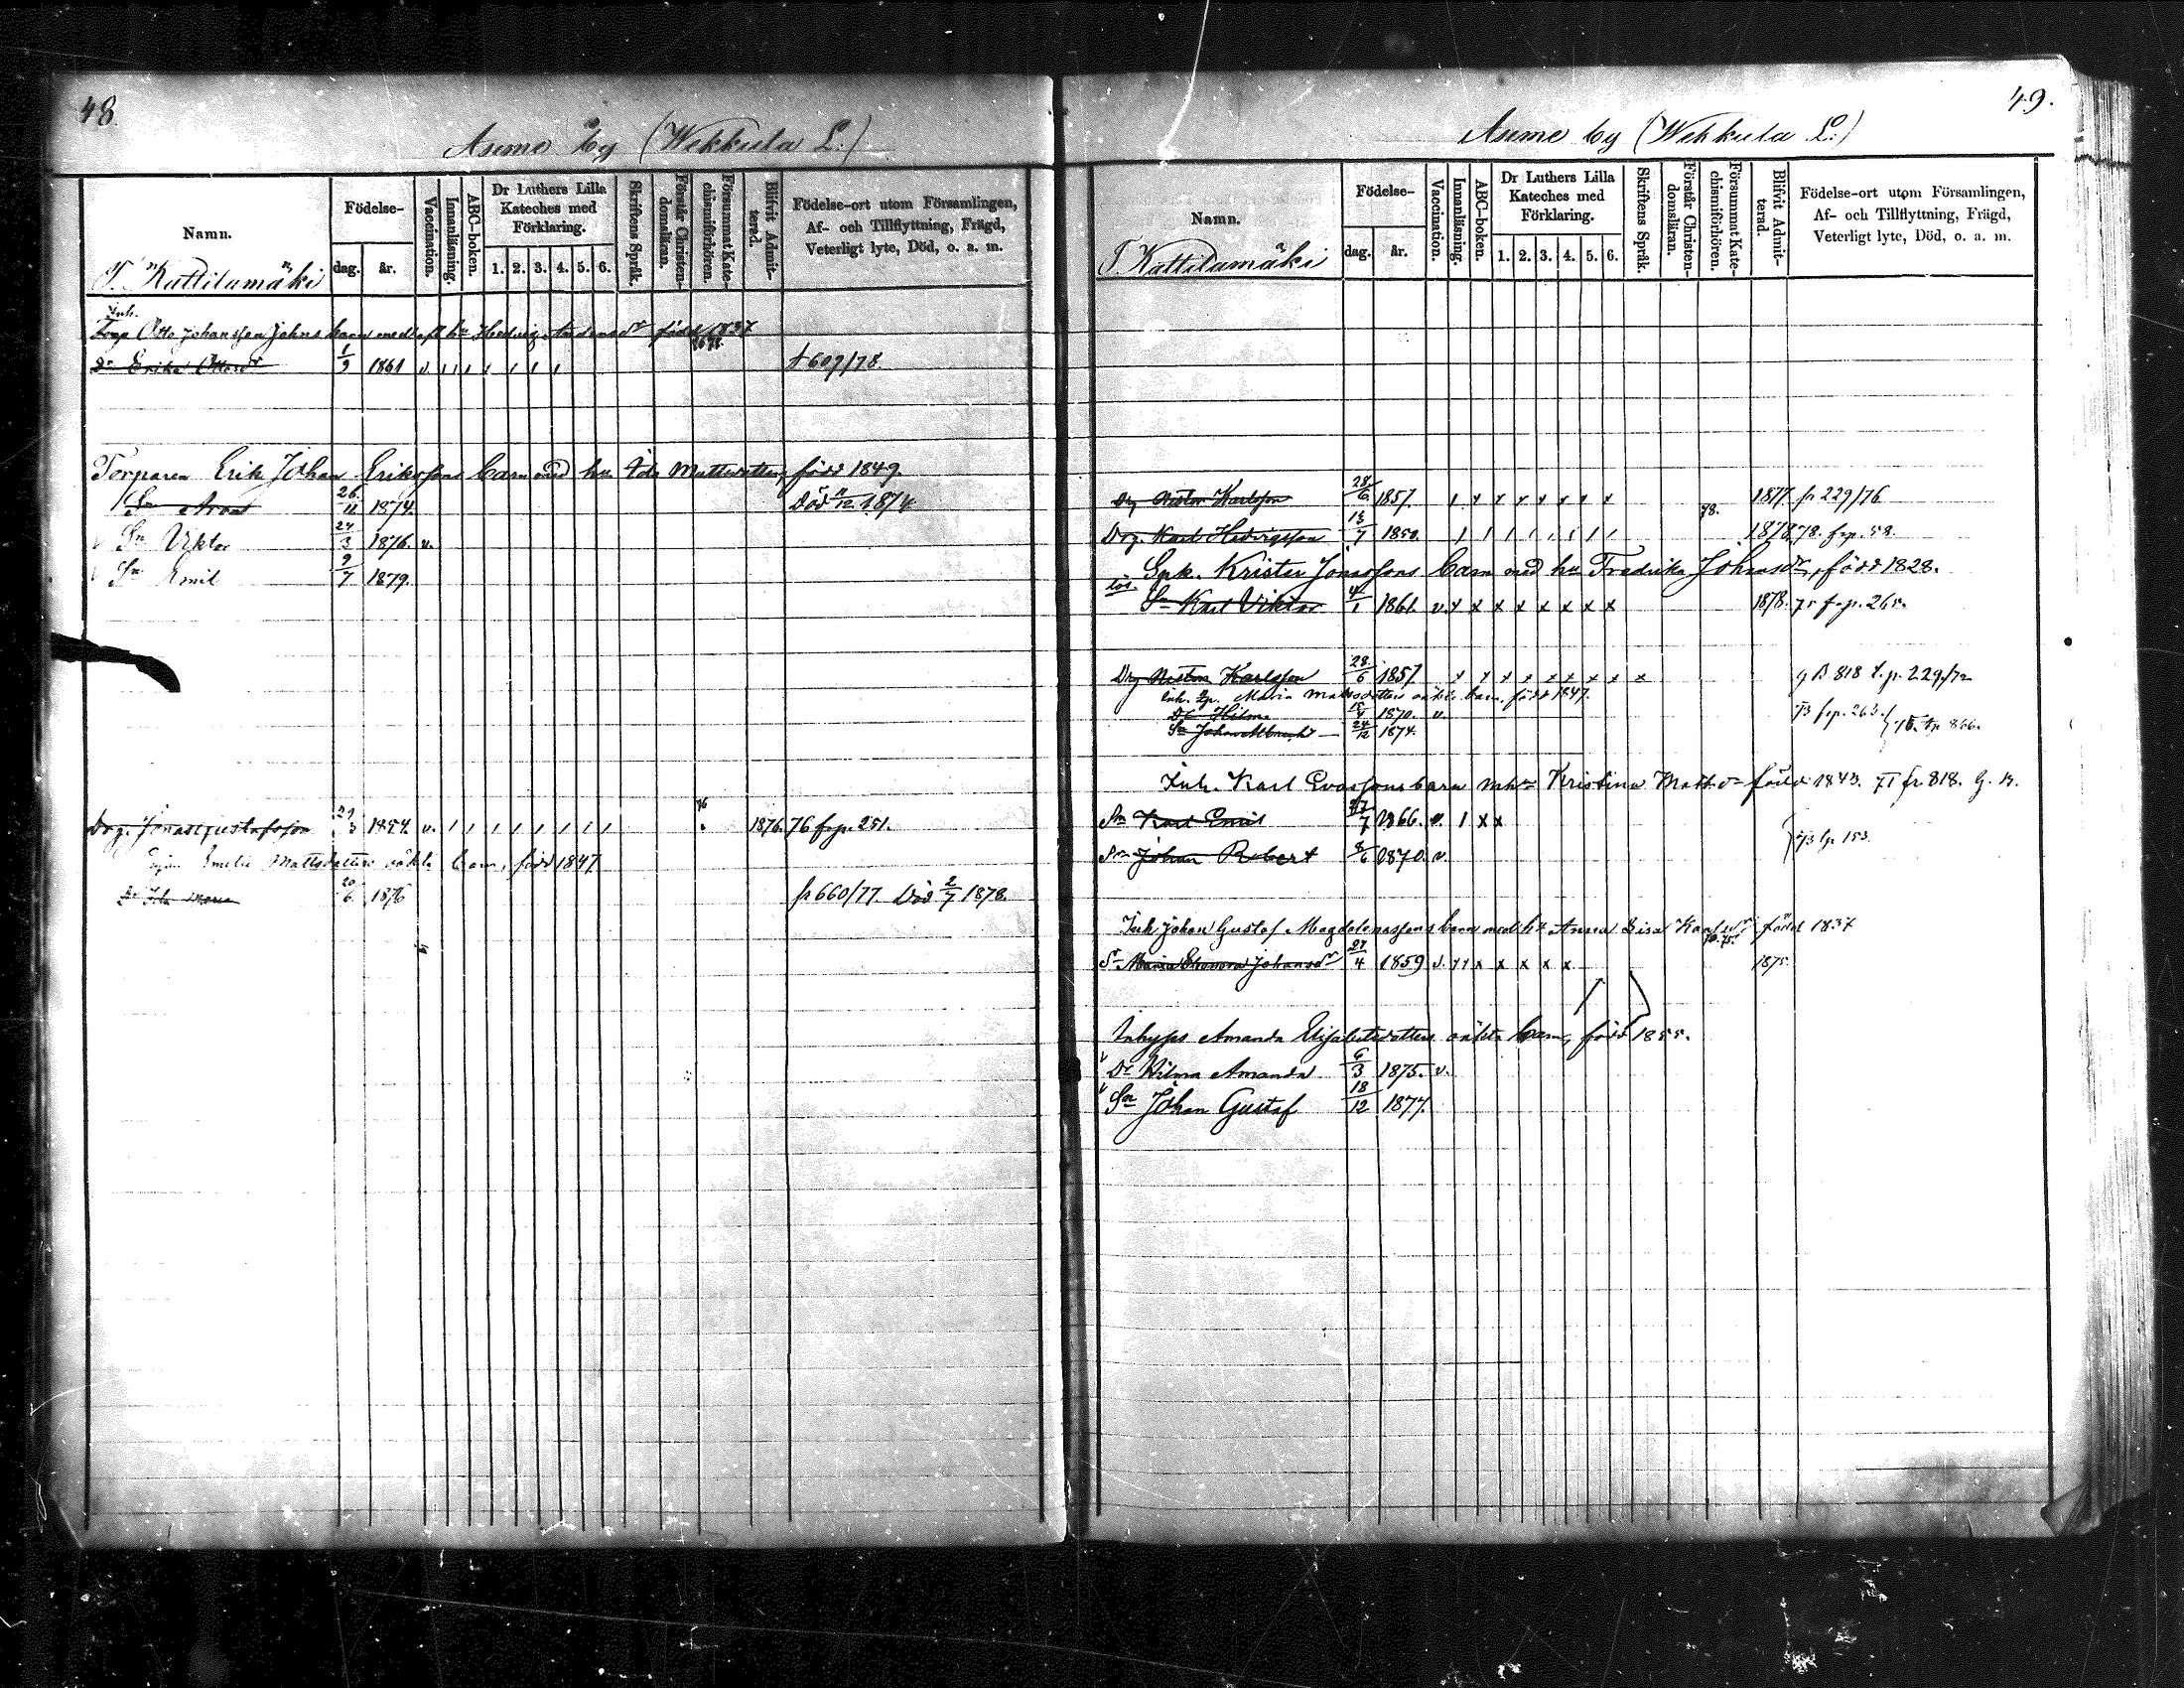 48.
Asume by (Wekkula L.)
Namn.
Födelse-
dag.
år.
Vaccination.
Innanläsning.
ABC-boken.
Dr Luthers Lilla Kateches med Förklaring.
1. 2. 3. 4. 5. 6.
Skriftens Språk.
Förstår Christen-domsläran.
Försummat Kate-chismiförhören.
Blifvit Admit-terad.
Födelse-ort utom Församlingen,
Af- och Tillflyttning, Frägd,
Veterligt lyte, Död, o. a. m.
T. Kattilamäki
Inh.
Torp Otto Johansson Johns barn med hu Hedvig född 1837
Dr Erika Ottosdr 1/9 1861 v. 609/78.
Torparen Erik Johan Erikssons barn med hu Ida Mattsdotter, född 1849.
Sn 26/11 1874. Död /12 1874
Sn Viktor 24/3 1876. v.
Sn Emil 9/7 1879.
Drg. Jonas Gustafsson 29/3 1854. v. 76 1876. 76 frp. 251.
Emelie Mattsdotters oäkta barn, född 1847.
Dr Ida Maria 20/6 1876 fr 660/77. Död 2/7 1878.
49.
Asume by (Wekkula L.)
Namn.
Födelse-
dag.
år.
Vaccination.
Innanläsning.
ABC-boken.
Dr Luthers Lilla Kateches med Förklaring.
1. 2. 3. 4. 5. 6.
Skriftens Språk.
Förstår Christen-domsläran.
Försummat Kate-chismiförhören.
Blifvit Admit-terad.
Födelse-ort utom Församlingen,
Af- och Tillflyttning, Frägd,
Veterligt lyte, Död, o. a. m.
T. Kattilamäki
Drg Karlsson 28/6 1857. x x x x x x x 1877. fr 229/76
Drg. Karl Hedvigsson 13/7 1850. 78. 1878. 78. frp. 58.
Spk. Krister Jonassons barn med hu Fredrika Johansdr, född 1828.
lös Sn Karl Viktor 4/1 1861. v. x x x x x x x x 1878. 75 frp. 265.
Drg Karlsson 28/6 1857 x x x x x x x x x g B 818 t. p. 229/72
Inh. Maria Mattsdotters oäkta barn, född 1847.
Dr Hilma 15/4 1870. v. 73 frp. 263.
Sn Johan Albrecht 24/12 1874. 75. tp. 866.
Inh. Karl Evassons barn m hu Kristina Mattsdr född 1843. 71 fr 818. g. B.
Sn Karl Emil 27/7 1866. v. x x
Sn Johan Robert 8/6 1870. v. 73 tp 153.
Inh Johan Gustaf Magdalenassons barn med hu Anna Lisa Karlsdr född 1837
Dr Maria Eleonora Johansdr 27/4 1859 v. x x x x x x x 1875.
Inhyses Amanda Elisabetsdotters oäkta barn, född 1855.
Dr Hilma Amanda 6/3 1875. v.
Sn Johan Gustaf 18/12 1877.